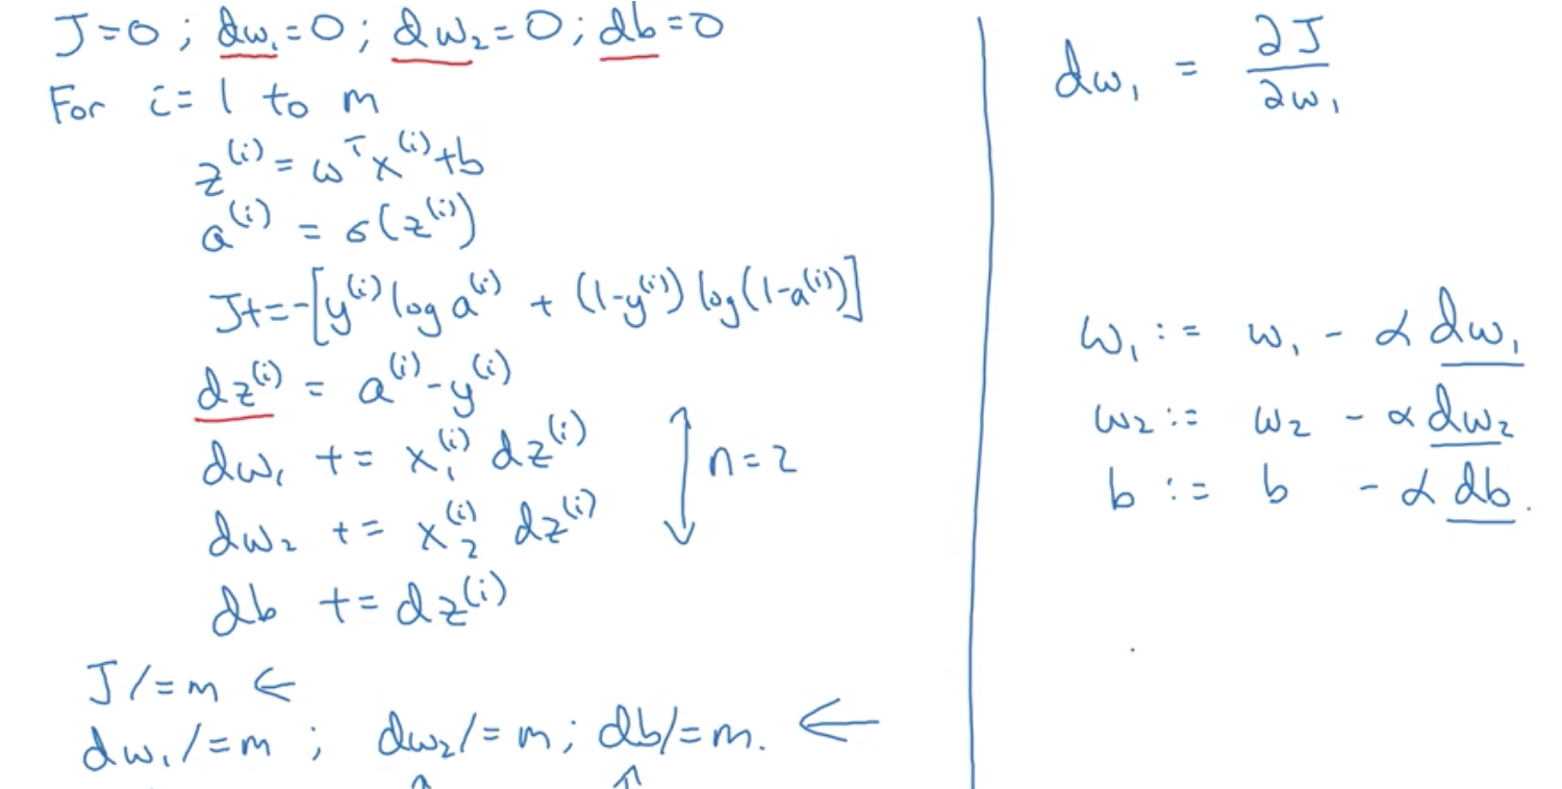 J=0; dw₁=0; dw₂=0; db=0
For i=1 to m
z⁽ⁱ⁾ = wᵀx⁽ⁱ⁾+b
a⁽ⁱ⁾ = σ(z⁽ⁱ⁾)
J+=-[y⁽ⁱ⁾ log a⁽ⁱ⁾ + (1-y⁽ⁱ⁾) log(1-a⁽ⁱ⁾)]
dz⁽ⁱ⁾ = a⁽ⁱ⁾-y⁽ⁱ⁾
dw₁ += x₁⁽ⁱ⁾ dz⁽ⁱ⁾
dw₂ += x₂⁽ⁱ⁾ dz⁽ⁱ⁾
n=2
db += dz⁽ⁱ⁾
J/=m ←
dw₁/=m; dw₂/=m; db/=m. ←
dw₁ = ∂J/∂w₁
w₁ := w₁ - α dw₁
w₂ := w₂ - α dw₂
b := b - α db.